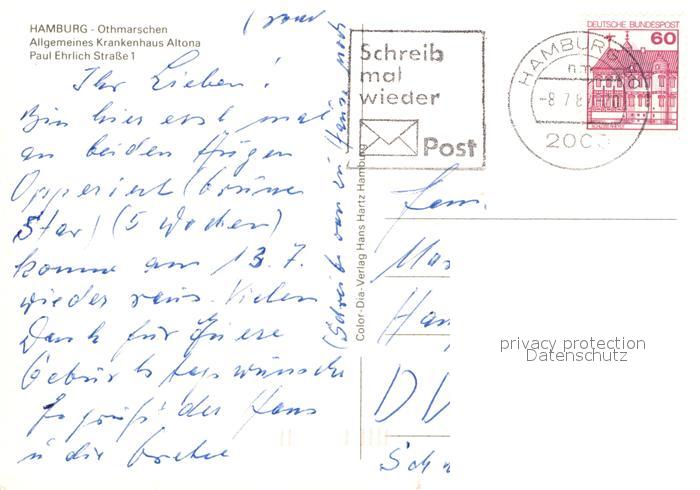 HAMBURG - Othmarschen
Allgemeines Krankenhaus Altona
Paul Ehrlich Straße 1
Ihr Lieben!
Bin hier erst mal
an beiden Augen
Opperiert (Grüner
Star) (5 Wochen)
komme am 13.7.
wieder raus. Vielen
Dank für Euere
Geburtstagswünsche
Es grüßt der Hans
u die Grete
(Schreibe von zu Hause noch
Color-Dia-Verlag Hans Hartz Hamburg
Schreib
mal
wieder
Post
HAMBURG
-8.7.8
200
DEUTSCHE BUNDESPOST
60
Fam.
Ha
D
Sch
privacy protection
Datenschutz